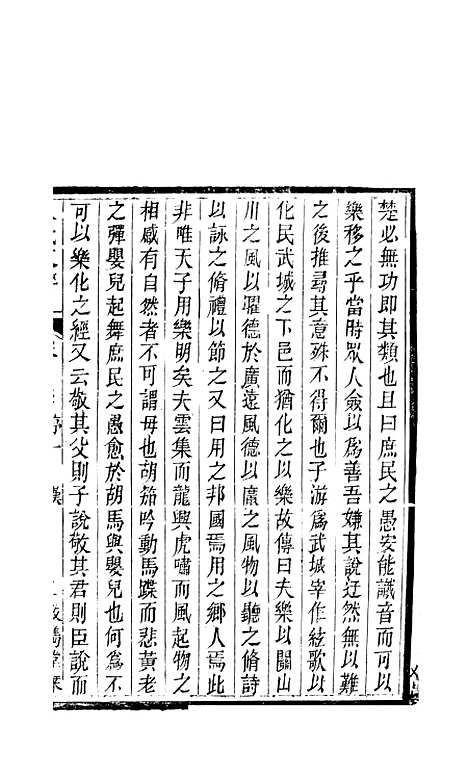 楚必無功即其類也且曰庶民之愚安能識音而可以
樂移之乎當時眾人僉以爲善吾嫌其說迂然無以難
之後推尋其意殊不得爾也子游爲武城宰作絃歌以
化民武城之下邑而猶化之以樂故傳曰夫樂以關山
川之風以曜德於廣遠風德以廣之風物以聽之脩詩
以詠之脩禮以節之又曰用之邦國焉用之鄉人焉此
非唯天子用樂明矣夫雲集而龍興虎嘯而風起物之
相感有自然者不可謂毋也胡笳吟動馬蹀而悲黃老
之彈嬰兒起舞庶民之愚愈於胡馬與嬰兒也何爲不
可以樂化之經又云敬其父則子說敬其君則臣說而